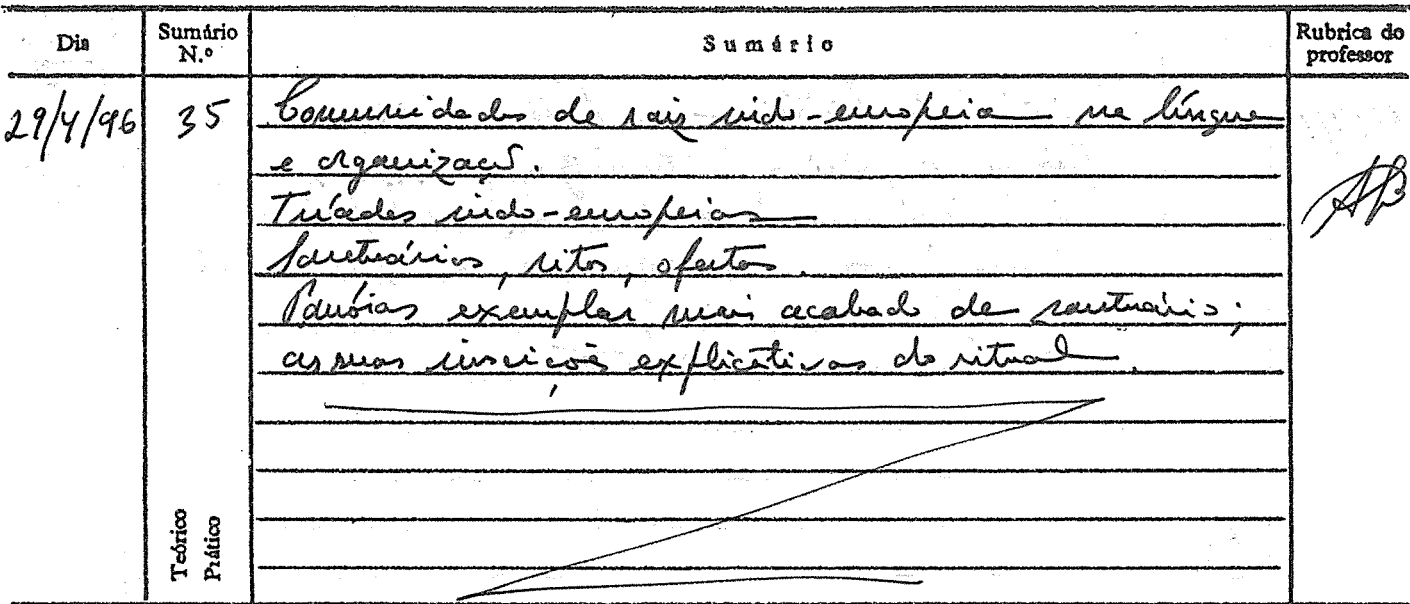 Dia
Sumário N.º
Sumário
Rubrica do professor
29/4/96
35
Comunidades de raiz indo-europeia na língua
e organização.
Tríades indo-europeias
Santuários, ritos, ofertas.
Panóias exemplar mais acabado de santuário;
as suas inscrições explicativas do ritual.
Teórico
Prático